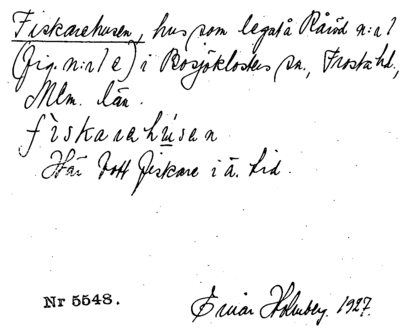 Fiskarehusen, hus som legat å Råröd n:r 1
(fig. n:r 1 e) i Bosjöklosters sn., Frosta hd.,
Mlm. län.
fìskarahu̱sen
Här bott fiskare i ä. tid.
Nr 5548. Einar Holmberg. 1927.